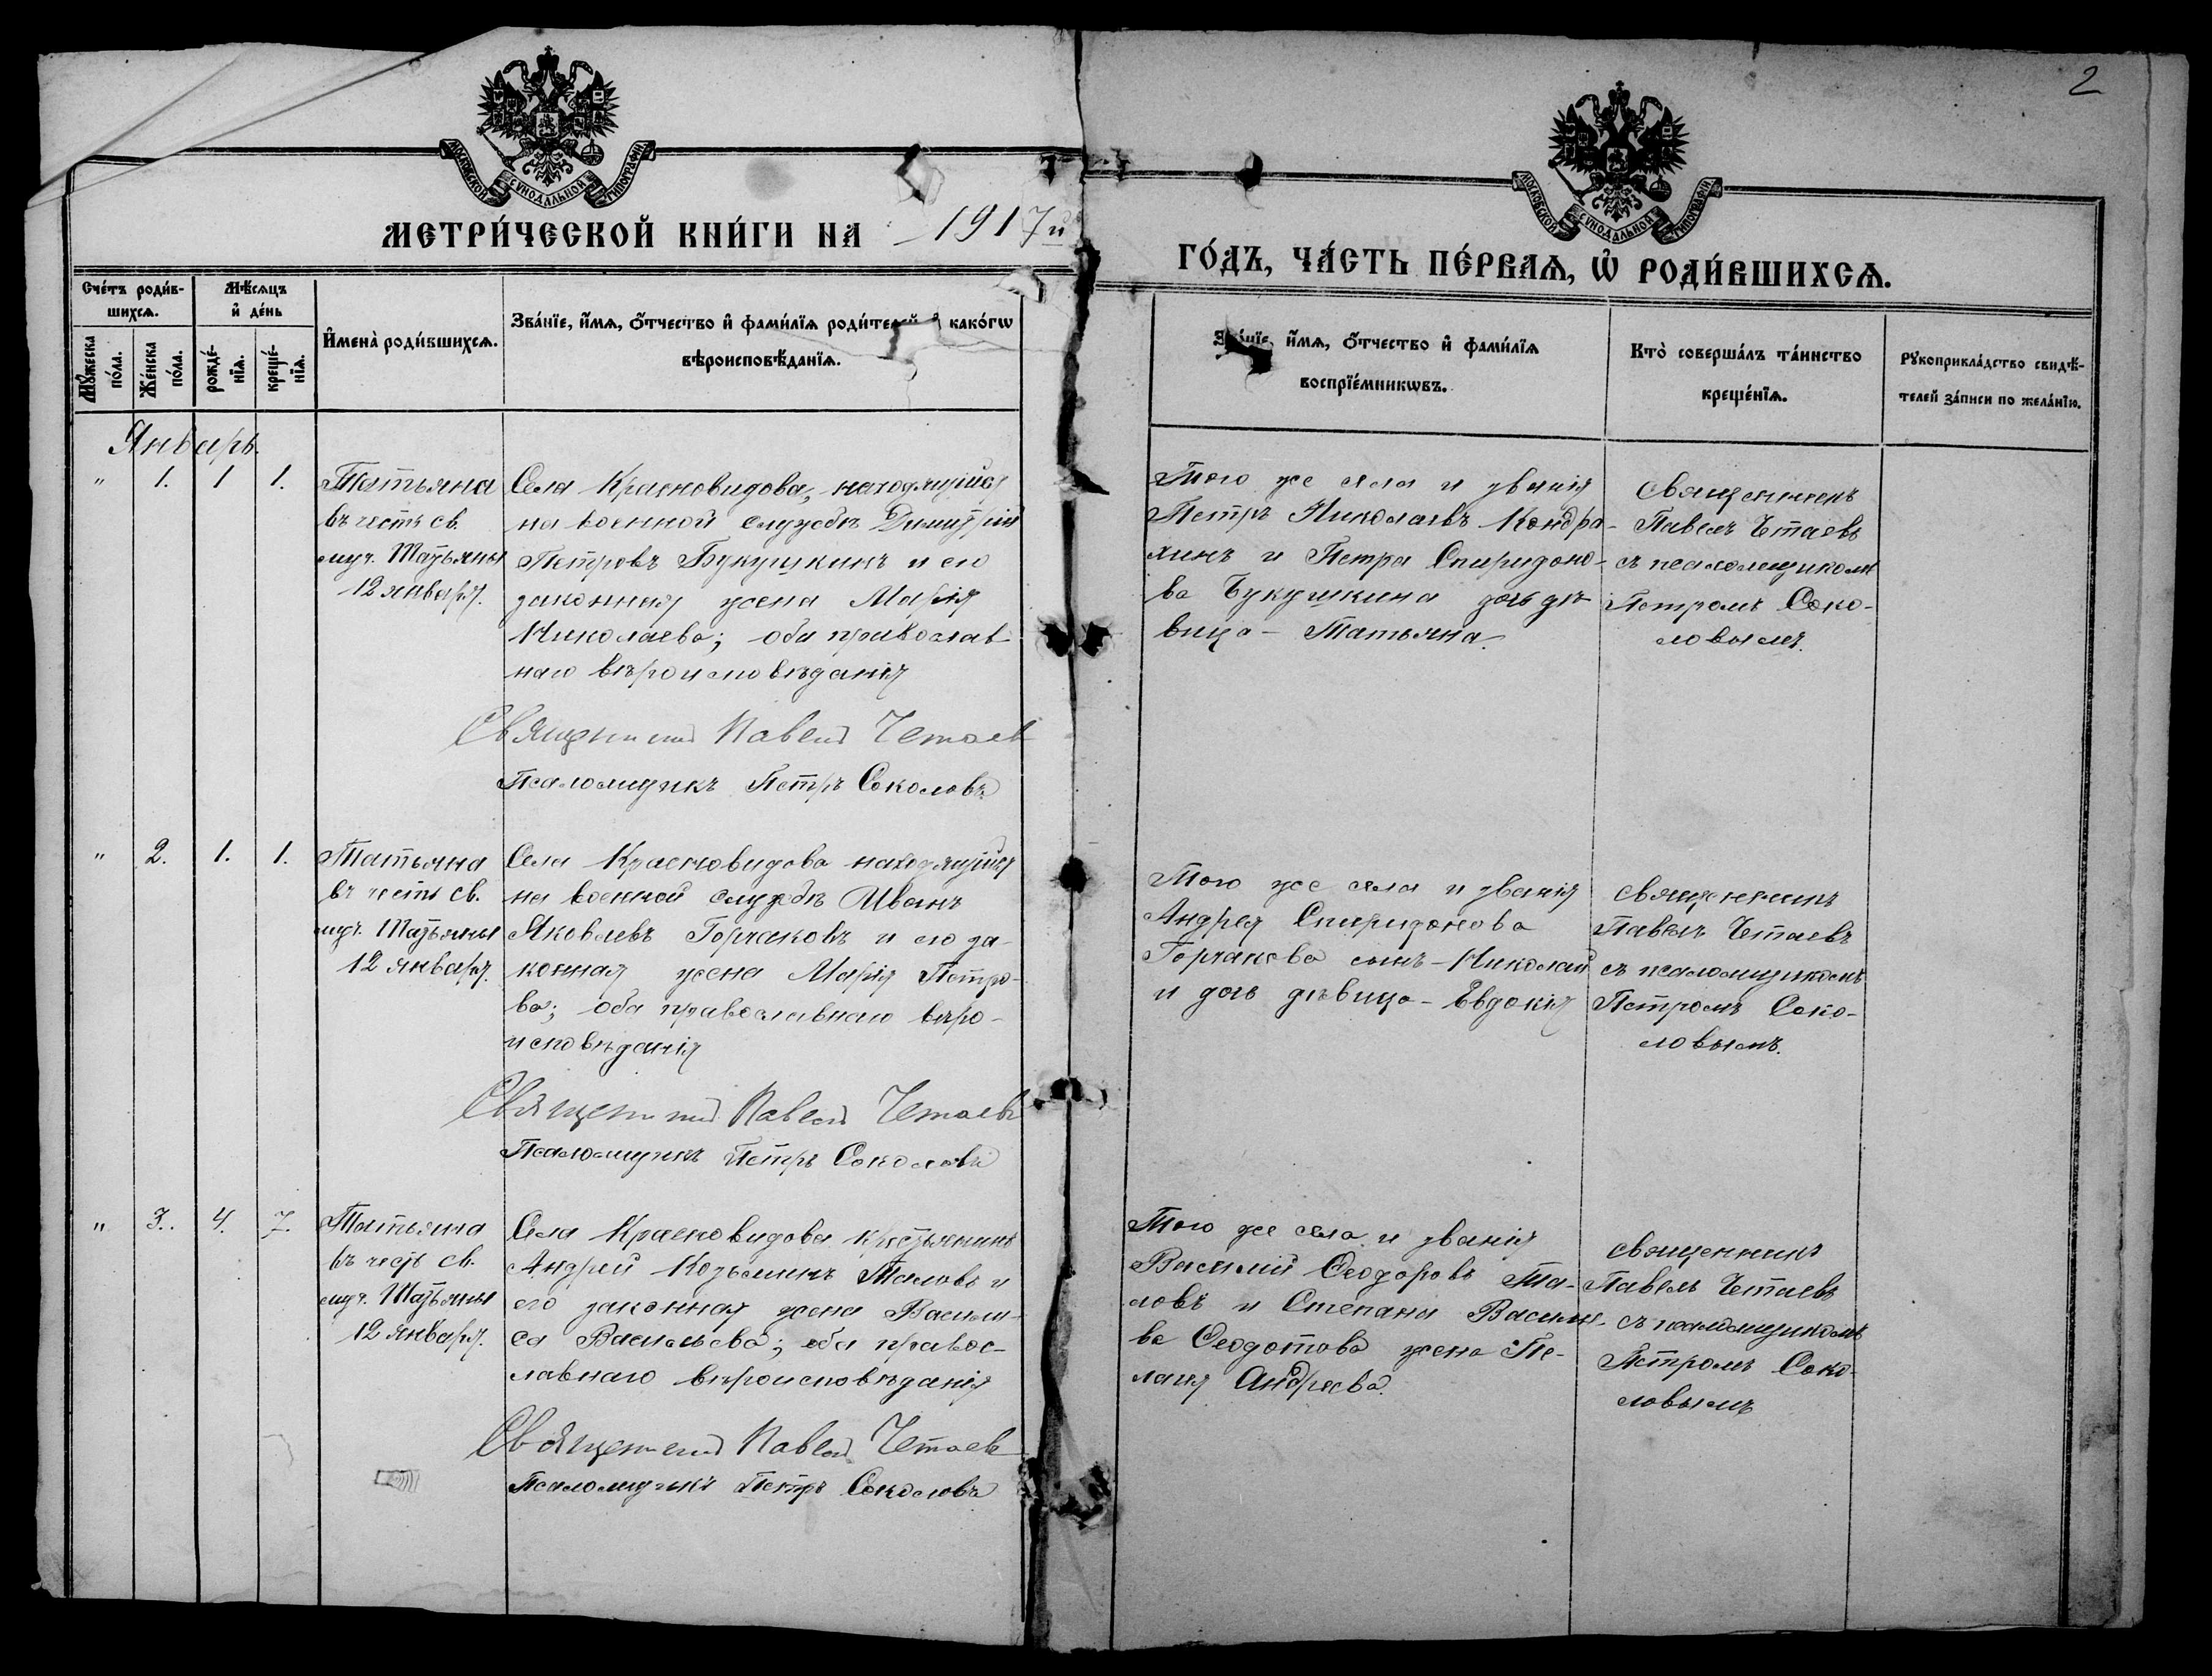 2
МОСКОВСКОЙ СѴНОДАЛЬНОЙ ТИПОГРАФІИ
МОСКОВСКОЙ СѴНОДАЛЬНОЙ ТИПОГРАФІИ
МЕТРИ́ЧЕСКОЙ КНИ́ГИ НА 1917й
ГО́ДЪ, ЧА́СТЬ ПЕ́РВАѦ, Ѡ҆ РОДИ́ВШИХСѦ.
Сче́тъ роди́в-
шихсѧ.
Мѣ́сѧцъ
и҆ де́нь
Мꙋ́жеска
по́ла.
Же́нска
по́ла.
рожде́-
нїѧ.
креще́-
нїѧ.
И҆мена̀ роди́вшихсѧ.
Зва́нїе, и҆́мѧ, ѻ҆́тчество и҆ фами́лїѧ роди́телей и҆ како́гѡ
вѣроисповѣ́данїѧ.
Зва́нїе, и҆́мѧ, ѻ҆́тчество и҆ фами́лїѧ
воспрїе́мникѡвъ.
Кто̀ соверша́лъ та́инство
креще́нїѧ.
Рꙋкоприкла́дство свидѣ́-
телей за́писи по жела́нїю.
Январь.
" 1. 1 1.
Татьяна
въ честь св.
муч. Татьяны
12 января.
Села Красновидова, находящійся
на военной службѣ Димитрій
Петровъ Букушкинъ и его
законная жена Марія
Николаева; оба православ-
наго вѣроисповѣданія
Священникъ Павелъ Четаев
Псаломщикъ Петръ Соколовъ
Того же села и званія
Петръ Николаевъ Кондра-
хинъ и Петра Спиридоно-
ва Букушкина дочь дѣ-
вица - Татьяна.
Священникъ
Павелъ Четаевъ
съ псаломщикомъ
Петромъ Соко-
ловымъ.
" 2. 1. 1.
Татьяна
въ честь св.
муч. Татьяны
12 января.
Села Красновидова находящійся
на военной службѣ Иванъ
Яковлевъ Горчаковъ и его за-
конная жена Марія Петро-
ва; оба православнаго вѣро-
исповѣданія
Священникъ Павелъ Четаевъ
Псаломщикъ Петръ Соколовъ
Того же села и званія
Андрея Спиридонова
Горчакова сынъ - Николай
и дочь дѣвица - Евдокія
Священникъ
Павелъ Четаевъ
съ псаломщикомъ
Петромъ Соко-
ловымъ.
" 3. 4. 7.
Татьяна
въ честь св.
муч. Татьяны
12 января.
Села Красновидова крестьянинъ
Андрей Козьминъ Таловъ и
его законная жена Васили-
са Васильева; оба правос-
лавнаго вѣроисповѣданія
Священникъ Павелъ Четаев
Псаломщикъ Петръ Соколовъ
Того же села и званія
Василий Ѳеодоровъ Та-
ловъ и Степана
ва Ѳедотова жена Пе-
лагія Андреева.
Священникъ
Павелъ Четаевъ
съ псаломщикомъ
Петромъ Соко-
ловымъ